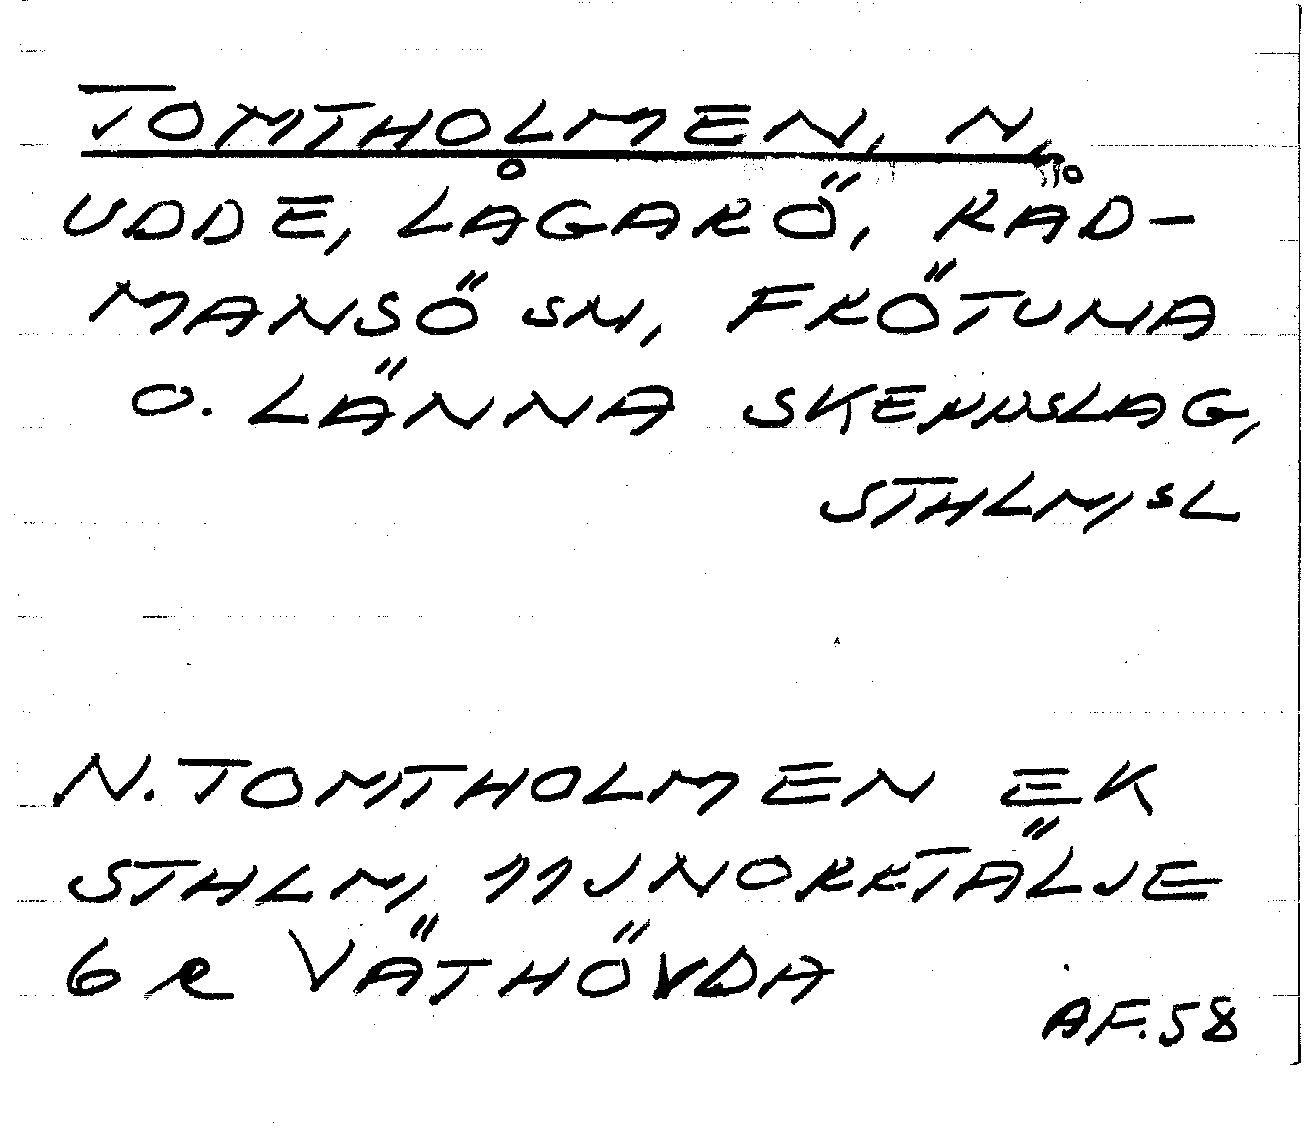 TOMTHOLMEN, N,
UDDE, LÅGARÖ, RÅD-
MANSÖ SN, FRÖTUNA
O. LÄNNA SKEPPSLAG,
STHLMSL
N. TOMTHOLMEN EK
STHLM, 11J NORRTÄLJE
6 e VÄTHÖVDA
AF. 58